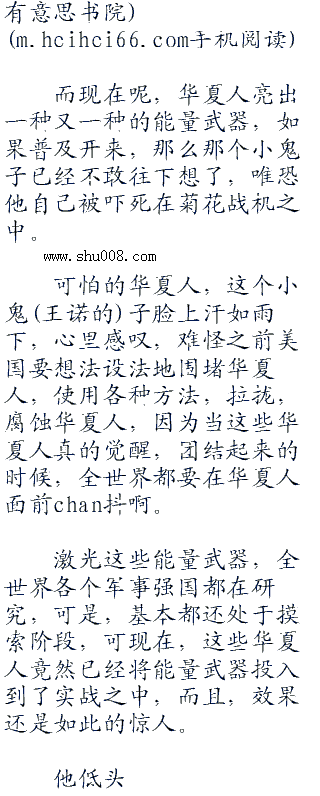 有意思书院)
(m.hcihci66.com手机阅读)
而现在呢，华夏人亮出
一种又一种的能量武器，如
果普及开来，那么那个小鬼
子已经不敢往下想了，唯恐
他自己被吓死在菊花战机之
中。
www.shu008.com
可怕的华夏人，这个小
鬼(王诺的)子脸上汗如雨
下，心里感叹，难怪之前美
国要想法设法地围堵华夏
人，使用各种方法，拉拢，
腐蚀华夏人，因为当这些华
夏人真的觉醒，团结起来的
时候，全世界都要在华夏人
面前chan抖啊。
激光这些能量武器，全
世界各个军事强国都在研
究，可是，基本都还处于摸
索阶段，可现在，这些华夏
人竟然已经将能量武器投入
到了实战之中，而且，效果
还是如此的惊人。
他低头